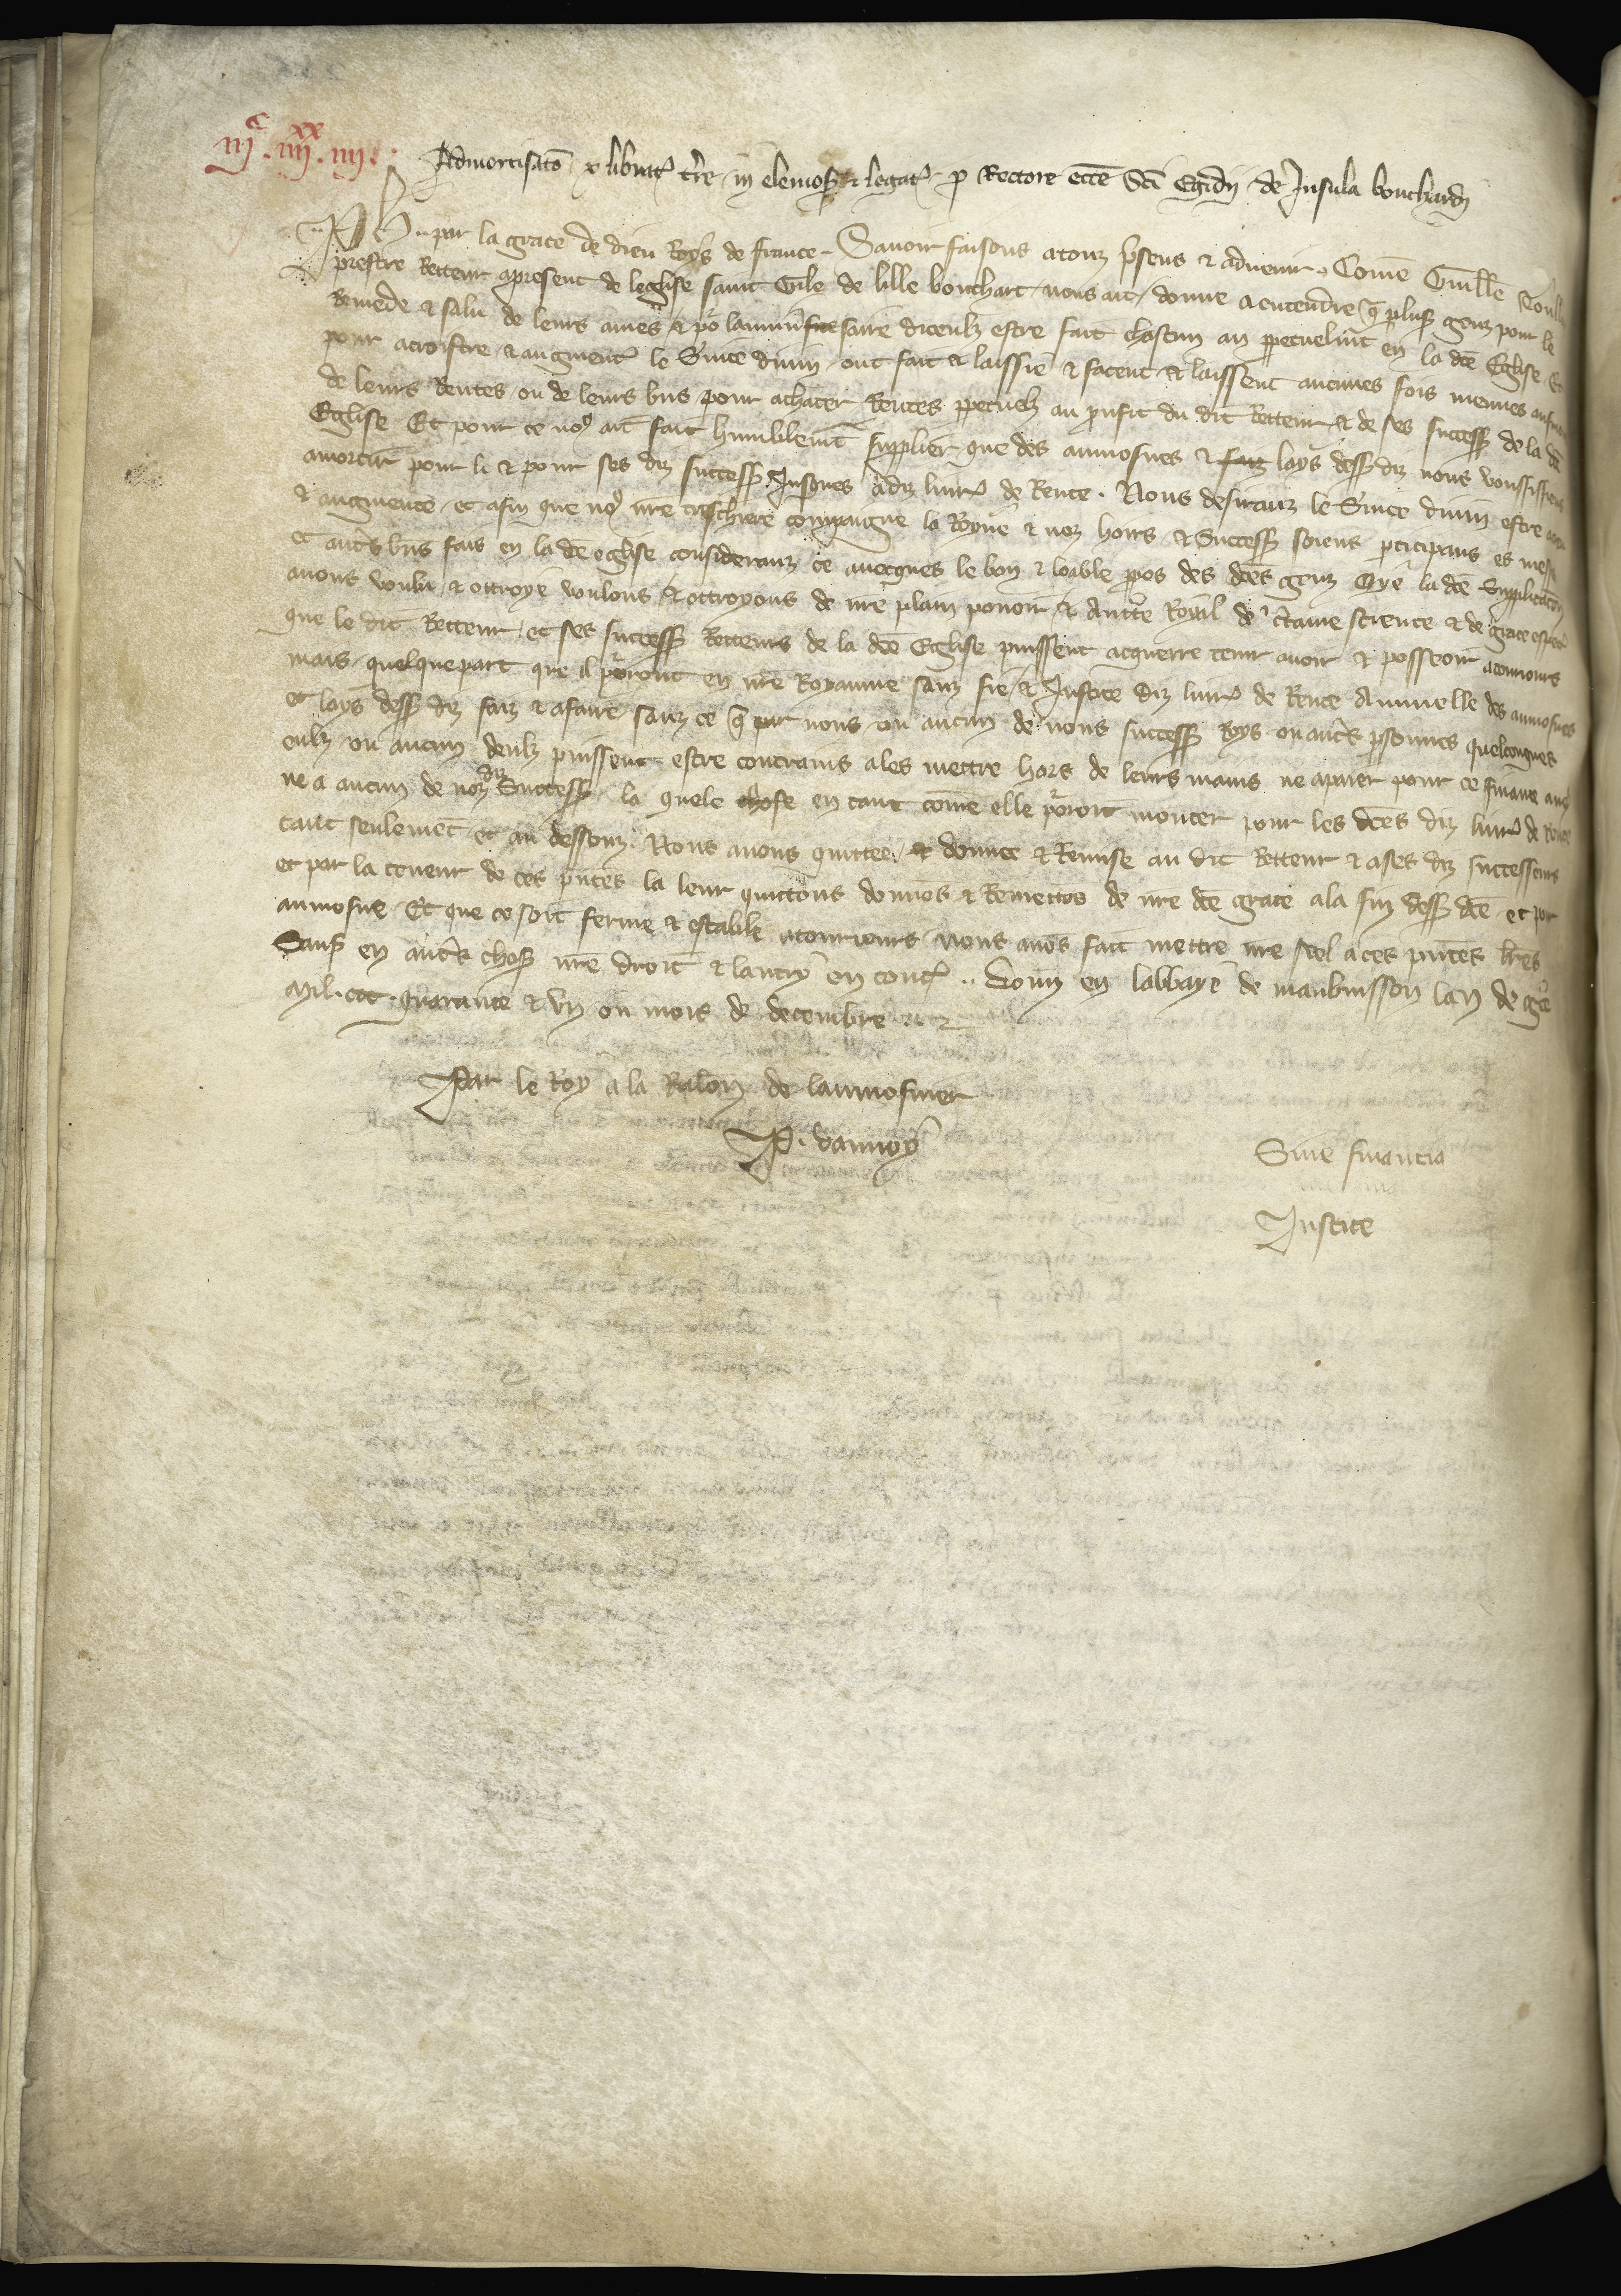 iijc. iiijxx. iiij.
Admortisatō x librat᷑ t̄re in elemos᷑ & legat᷑ p Rectore ecc̄e Sc̄i Egidij de Insula bouchardi
Ph .. par la grace de dieu Roys de france. Sauoir faisons a touz p̄sens & aduenir. Com̄e Guill̄e
prestre Retteur apresent de leglise saint Gile de lille bouchart nous ait donne a entendre q̄ plus᷑ genz pour le
Remede & salu de leurs ames & po᷑ lanniu᷑saire diceulz estre fait chascun an ppetuelm̄t en la dc̄e Eglise Et
pour acroistre & augment᷑ le s᷑uice diuin ont fait & laissie & facent & laissent aucunes fois menues aumosn
de leurs Rentes ou de leurs b̄ns pour achater Rentes ppetuelz au p̄ufit du dit Retteur & de ses success᷑ de la dc̄e
Eglise Et pour ce no᷒ ait fait humblem̄t supplier que des aumosnes & lays dess᷑ diz nous voussissiens
amortir pour li & pour ses diz success᷑ Jusques a diz liur᷑ de Rente. Nous desiranz le s᷑uice diuin estre
& augmente et afin que no᷒ nr̄e treschiere compaigne la Royne & noz hoirs & Success᷑ soiens pticipans es messes
et aut᷑s b̄ns fais en la dc̄e eglise consideranz ce auecques le bon & loable ppos des dc̄es genz Oye la dc̄e Supplicatiō
auons voulu & ottroye voulons & ottroyons de nr̄e plain pouoir & Auttē Royal de c̄taine science & de grace espec̄
que le dit Retteur et ses success᷑ Retteurs de la dc̄e Eglise puissent acquerre tenir auoir & posseoir a tourjours
mais quelquepart que il po᷑ront en nr̄e Royaume sanz fie & Justice diz liur᷑ de Rente Annuelle des aumosnes
et lays dess᷑ diz faiz & afaire sanz ce q̄ par nous ou aucun de nous success᷑ Roys ou aut᷑s p̄sonnes quelconques
eulz ou aucun deulz puissent estre contrains a les mettre hors de leurs mains ne apaier pour ce finance
ne a aucun de noz diz Success᷑ la quele chose en tant com̄e elle po᷑roit monter pour les dc̄es diz liur᷑ de Rente
tant seulemēt et au dessouz. Nous auons quittee & donnee & Remise au dit Retteur & a ses diz successeurs
et par la teneur de ces pn̄tes la leur quittons donnōs & Remettōs de nr̄e dc̄e grace a la fin dess᷑ dc̄e et par
aumosne Et que ce soit ferme & estable a tourjours nous auōs fait mettre nr̄e seel a ces pn̄tes lr̄es
Sauf en aut᷑s chos᷑ nr̄e droit & lautruy en tout᷑ .. Donn̄ en labbaye de maubuisson lan de gr̄ce
Mil. ccc. quarante & vn ou mois de decembre.
Par le Roy a la Relon̄ de laumosnier
P. dannoy
Sine financia
Justice